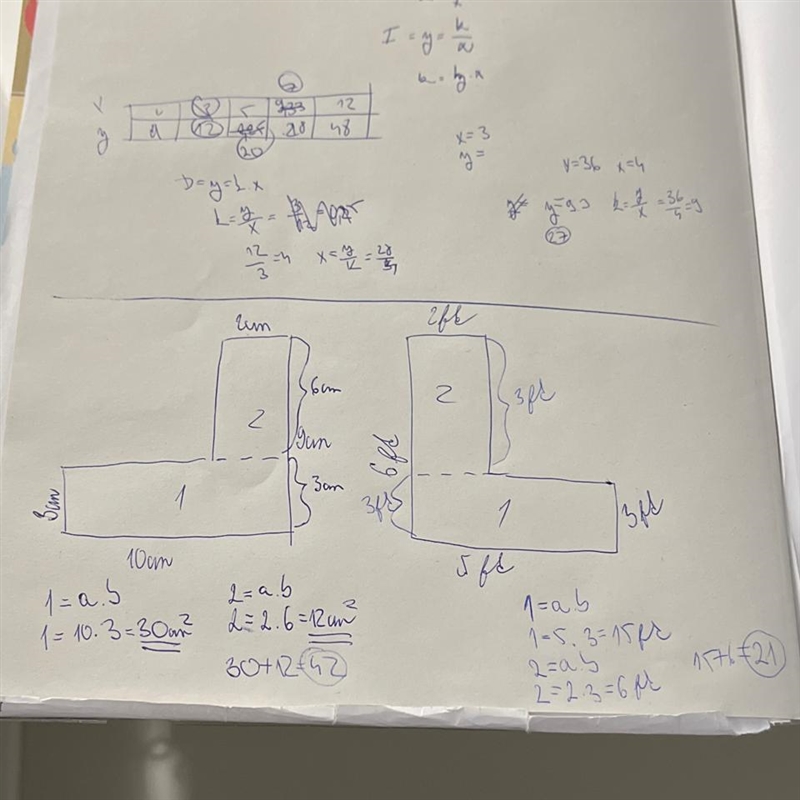 I = y = k/x
k = y·x
7
x 1 3 5 12
y 4 12 28 48
20
x=3
y=
y=36 x=4
D=y=k.x
k=y/x=
y=9.3 k=y/x=36/4=9
27
12/3=4 x=y/k=28/4
2cm
2ft
6cm
2
2
3ft
9cm
6ft
3cm
3cm
1
3ft
1
3ft
10cm
5ft
1=a.b
2=a.b
1=a.b
1=10.3=30cm²
2=2.6=12cm²
1=5.3=15ft
30+12=42
2=a.b
15+6=21
2=2.3=6ft